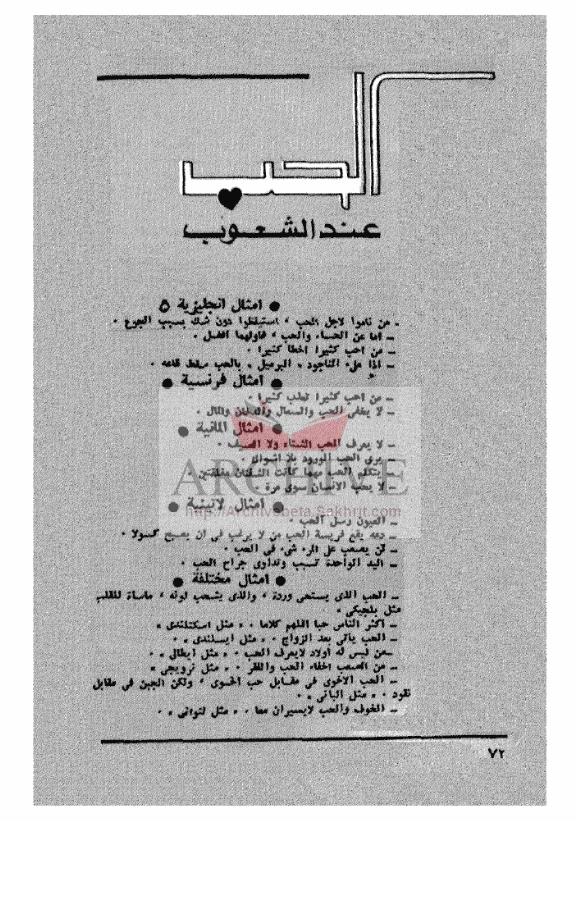 الحب
عند الشعوب
● امثال انجليزية ٥
ـ من ناموا لاجل الحب ، استيقظوا دون شك بسبب الجوع ٠
ـ اما عن الحساء والحب ، فاولهما افضل ٠
ـ من احب كثيرا اخطا كثيرا ٠
ـ اذا ملىء الناجود « البرميل » بالحب سقط قاعه ٠
● امثال فرنسية ●
ـ من احب كثيرا تعذب كثيرا ٠
ـ لا يخفى الحب والسعال والدخان والمال ٠
● امثال المانية ●
ـ لا يعرف الحب الشتاء ولا الصيف ٠
ـ يرى الحب الورود بلا اشواك ٠
ـ يتكلم الحب مهما كانت الشفتان مغلقتين ٠
ـ لا يحب الانسان سوى مرة ٠
● امثال لاتينية ●
ـ العيون رسل الحب ٠
ـ دعه يقع فريسة الحب من لا يرغب فى ان يصبح كسولا ٠
ـ لن يصعب على المرء شىء فى الحب ٠
ـ اليد الواحدة تسبب وتداوى جراح الحب ٠
● امثال مختلفة ●
ـ الحب الذى يستحى وردة ، والذى يشحب لونه ، ماساة للقلب
مثل بلجيكى »
ـ اكثر الناس حبا اقلهم كلاما ٠ « مثل اسكتلندى »
ـ الحب ياتى بعد الزواج ٠ « مثل ايسلندى » ٠
ـ من ليس له اولاد لايعرف الحب ٠ « مثل ايطالى » ٠
ـ من الصعب اخفاء الحب والفقر ٠ « مثل نرويجى »
ـ الحب الاخوى فى مقابل حب اخوى ، ولكن الجبن فى مقابل
نقود ٠ « مثل البانى » ٠
ـ الخوف والحب لايسيران معا ٠ « مثل لتوانى » ٠
٧٢
ARCHIVE
http://Archivebeta.Sakhrit.com